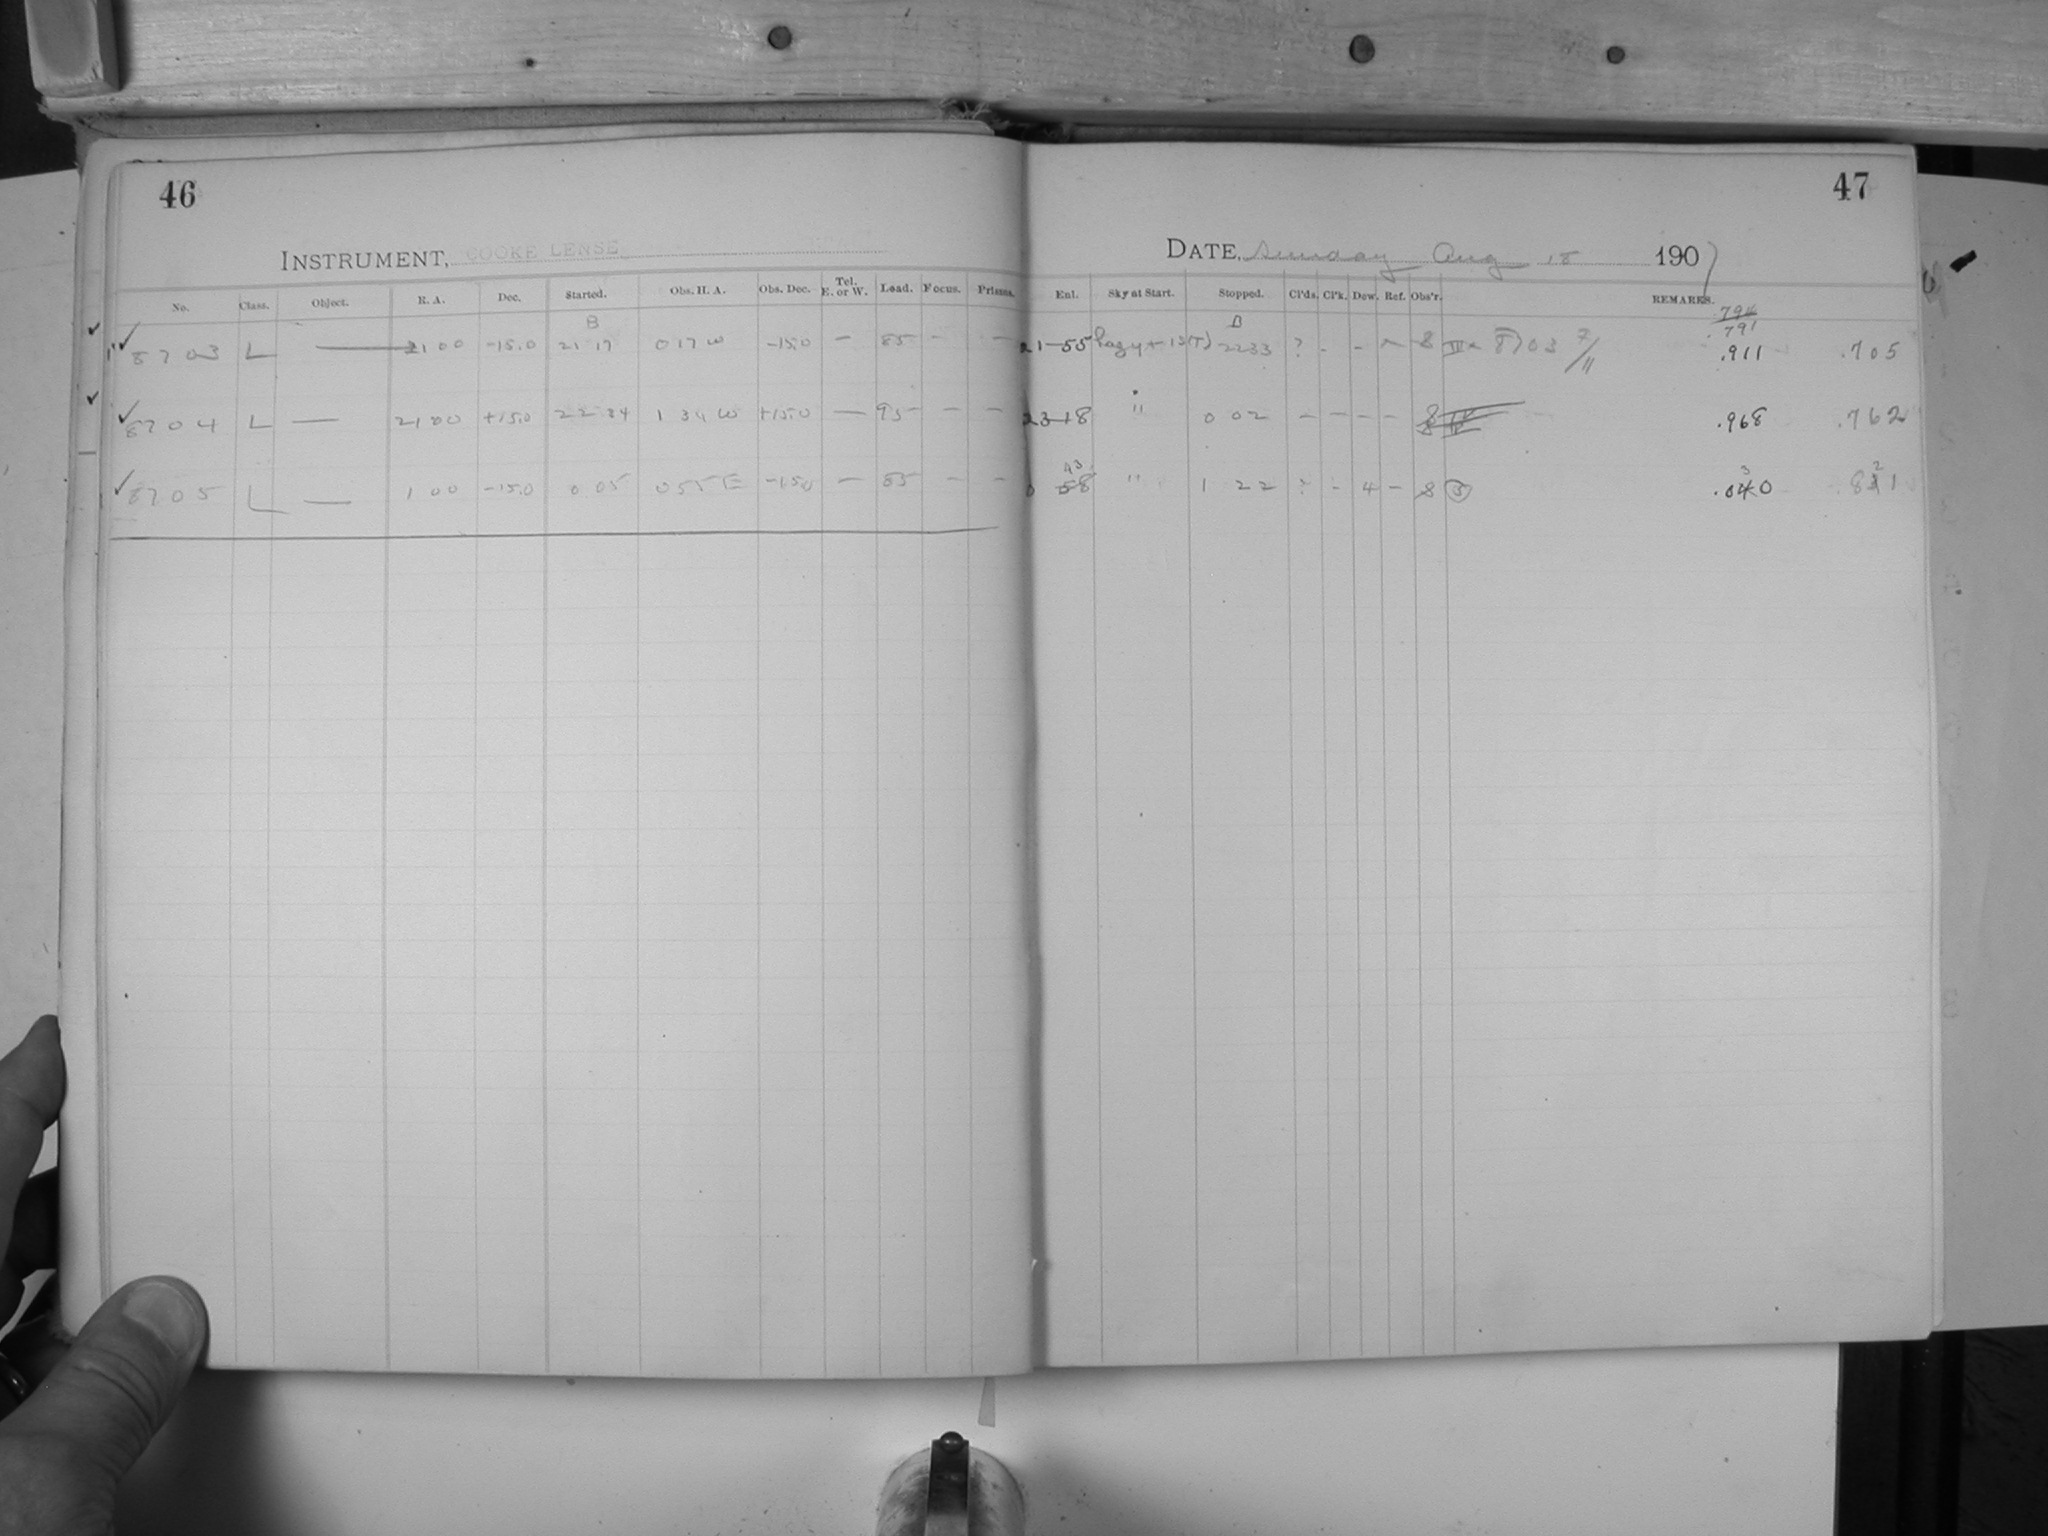 46
47
INSTRUMENT, COOKE LENSE
DATE, Sunday Aug 18 1907
No. Class. Object. R. A. Dec. Started. Obs. H. A. Obs. Dec. Tel. E. or W. Load. Focus. Prisms. Ent. Sky at Start. Stopped. Cl'ds. Cl'k. Dew. Ref. Obs'r. REMARKS.
B B 794
791
8703 L — 21 00 -15.0 21 17 0 17 W -15.0 — 85 - - 21-55 hazy + 13(T) 2233 ? - - - 8 8703 7/11 .911 .705
8704 L — 21 00 +15.0 22 34 1 34 W +15.0 — 95 - - 23-18 " 0 02 - - - - 8 .968 .762
43 3 2
8705 L — 1 00 -15.0 0 05 0 55 E -15.0 — 85 - - 0 58 " 1 22 ? - 4 - 8 .040 .811